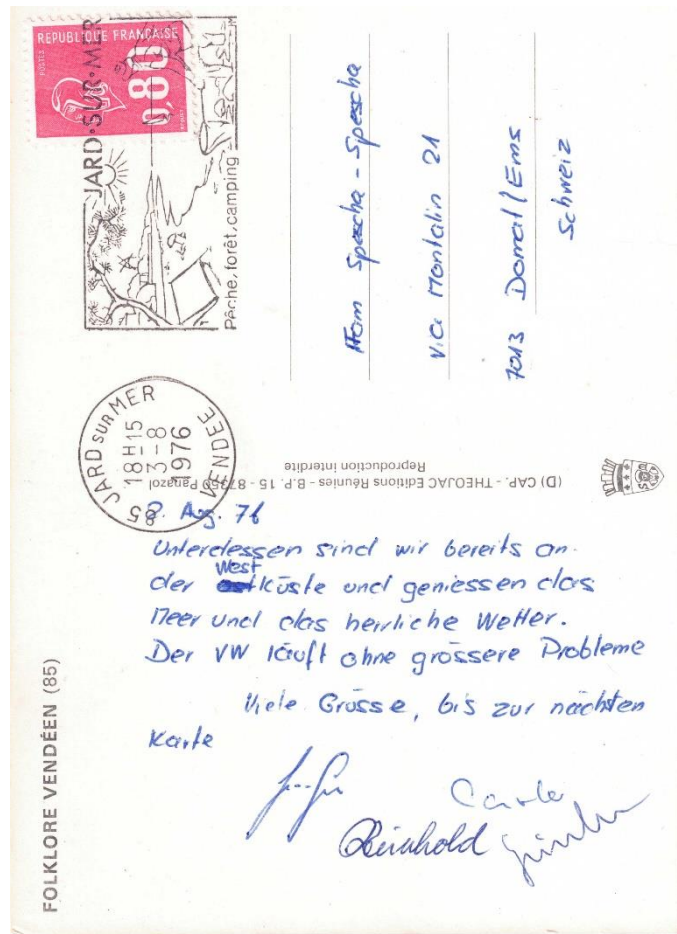 REPUBLIQUE FRANÇAISE
POSTES
0,80
JARD·SUR·MER
Pêche, forêt, camping
85 JARD SUR MER
18H15
3-8
1976
VENDEE
Fam Spescha - Spescha
Via Montalin 21
7013 Domat/Ems
Schweiz
(D) CAP. - THEOJAC Editions Réunies - B.P. 15 - 87350 Panazol
Reproduction interdite
Aug. 76
Unterdessen sind wir bereits an
der West küste und geniessen das
Meer und das herrliche Wetter.
Der VW läuft ohne grössere Probleme
Viele Grüsse, bis zur nächsten
Karte
Carla
Reinhold
FOLKLORE VENDÉEN (85)